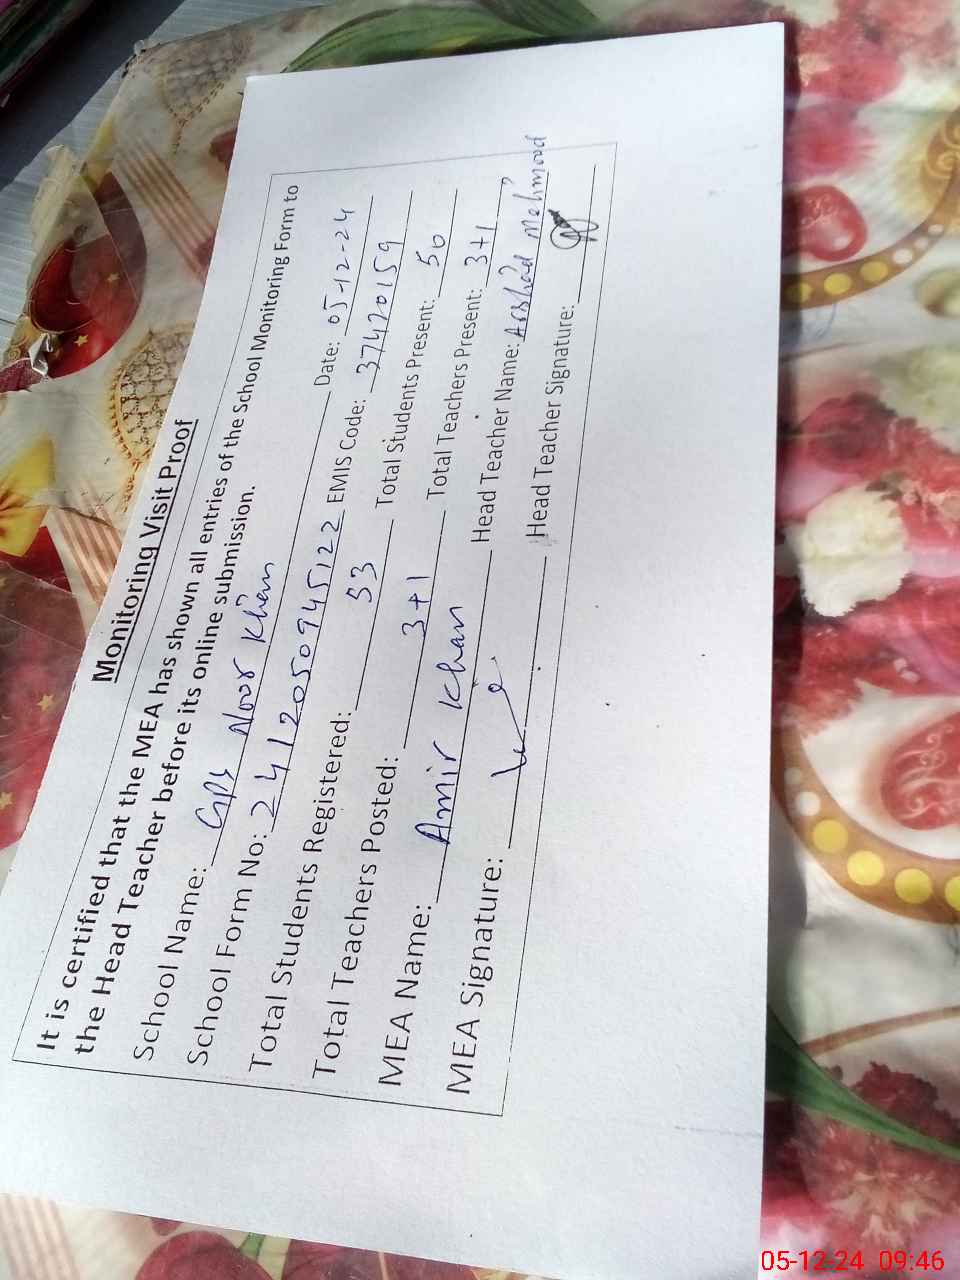 Monitoring Visit Proof
It is certified that the MEA has shown all entries of the School Monitoring Form to
the Head Teacher before its online submission.
School Name: GPS Noor Khan Date: 05-12-24
School Form No: 2412050945122 EMIS Code: 37420159
Total Students Registered: 53 Total Students Present: 50
Total Teachers Posted: 3+1 Total Teachers Present: 3+1
MEA Name: Amir Khan Head Teacher Name: Arshad Mehmood
MEA Signature: Head Teacher Signature:
05-12-24 09:46